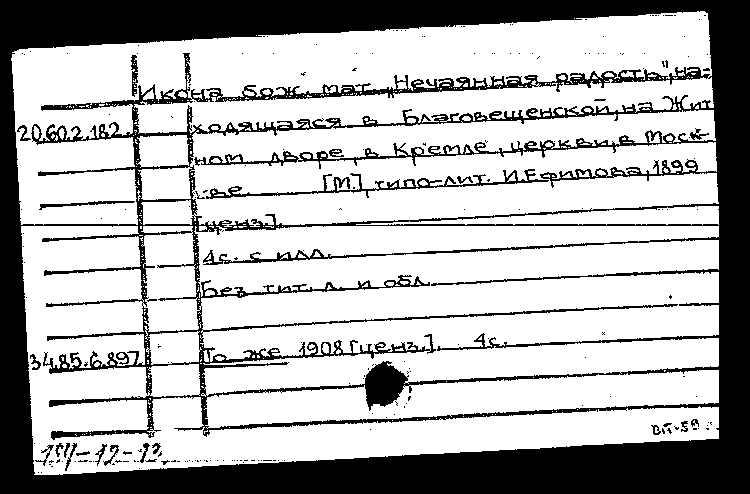 Икона Бож. мат. "Нечаянная радость", на-
20.60.2.182. ходящаяся в Благовещенской, на Жит
ном дворе, в Кремле, церкви, в Моск-
ве. [М.], типо-лит. И. Ефимова, 1899
[ценз.].
4с. с илл.
Без тит. л. и обл.
34.85.6.897. То же 1908 [ценз.]. 4с.
вп-59